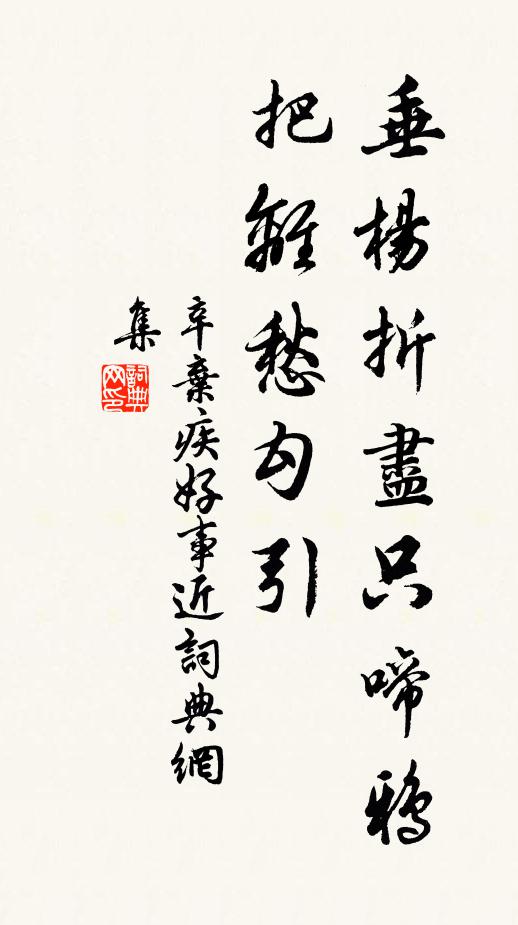 垂楊折盡只啼鴉
把離愁勾引
辛棄疾好事近詞典網
集
詞典
网印